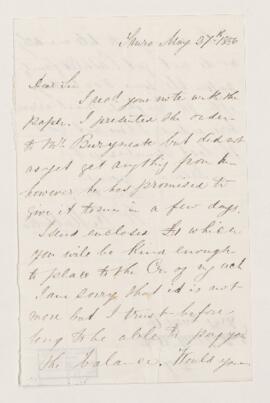 Truro May 27th 1856
Dear Sir
I recd your note with the
paper. I presented the order
to Mr. but did not
as yet get anything from him
however he has promised to
give it to me in a few days.
I send enclosed which
you will be kind enough
to place to the Cr. of my acct
I am sorry that it is not
more but I trust before
long to be able to pay you
the balance. Would you